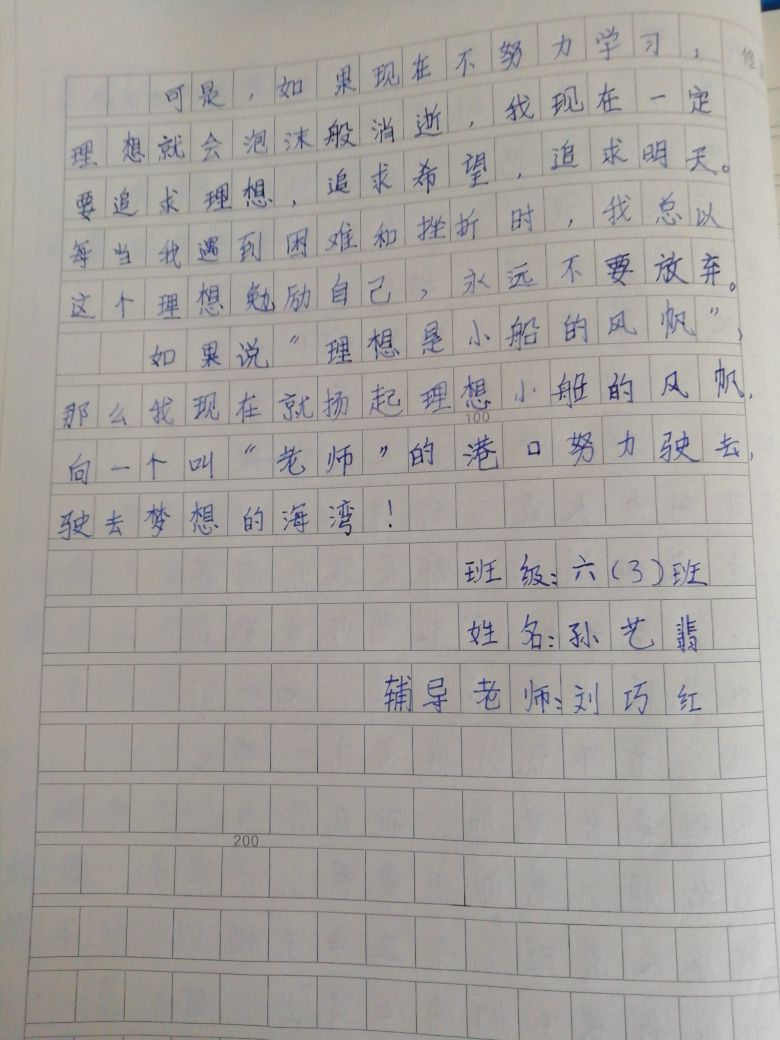 可是，如果现在不努力学习，
理想就会泡沫般消逝，我现在一定
要追求理想，追求希望，追求明天。
每当我遇到困难和挫折时，我总以
这个理想勉励自己，永远不要放弃。
如果说“理想是小船的风帆”，
那么我现在就扬起理想小船的风帆，
100
向一个叫“老师”的港口努力驶去，
驶去梦想的海湾！
班级：六（3）班
姓名：孙艺翡
辅导老师：刘巧红
200